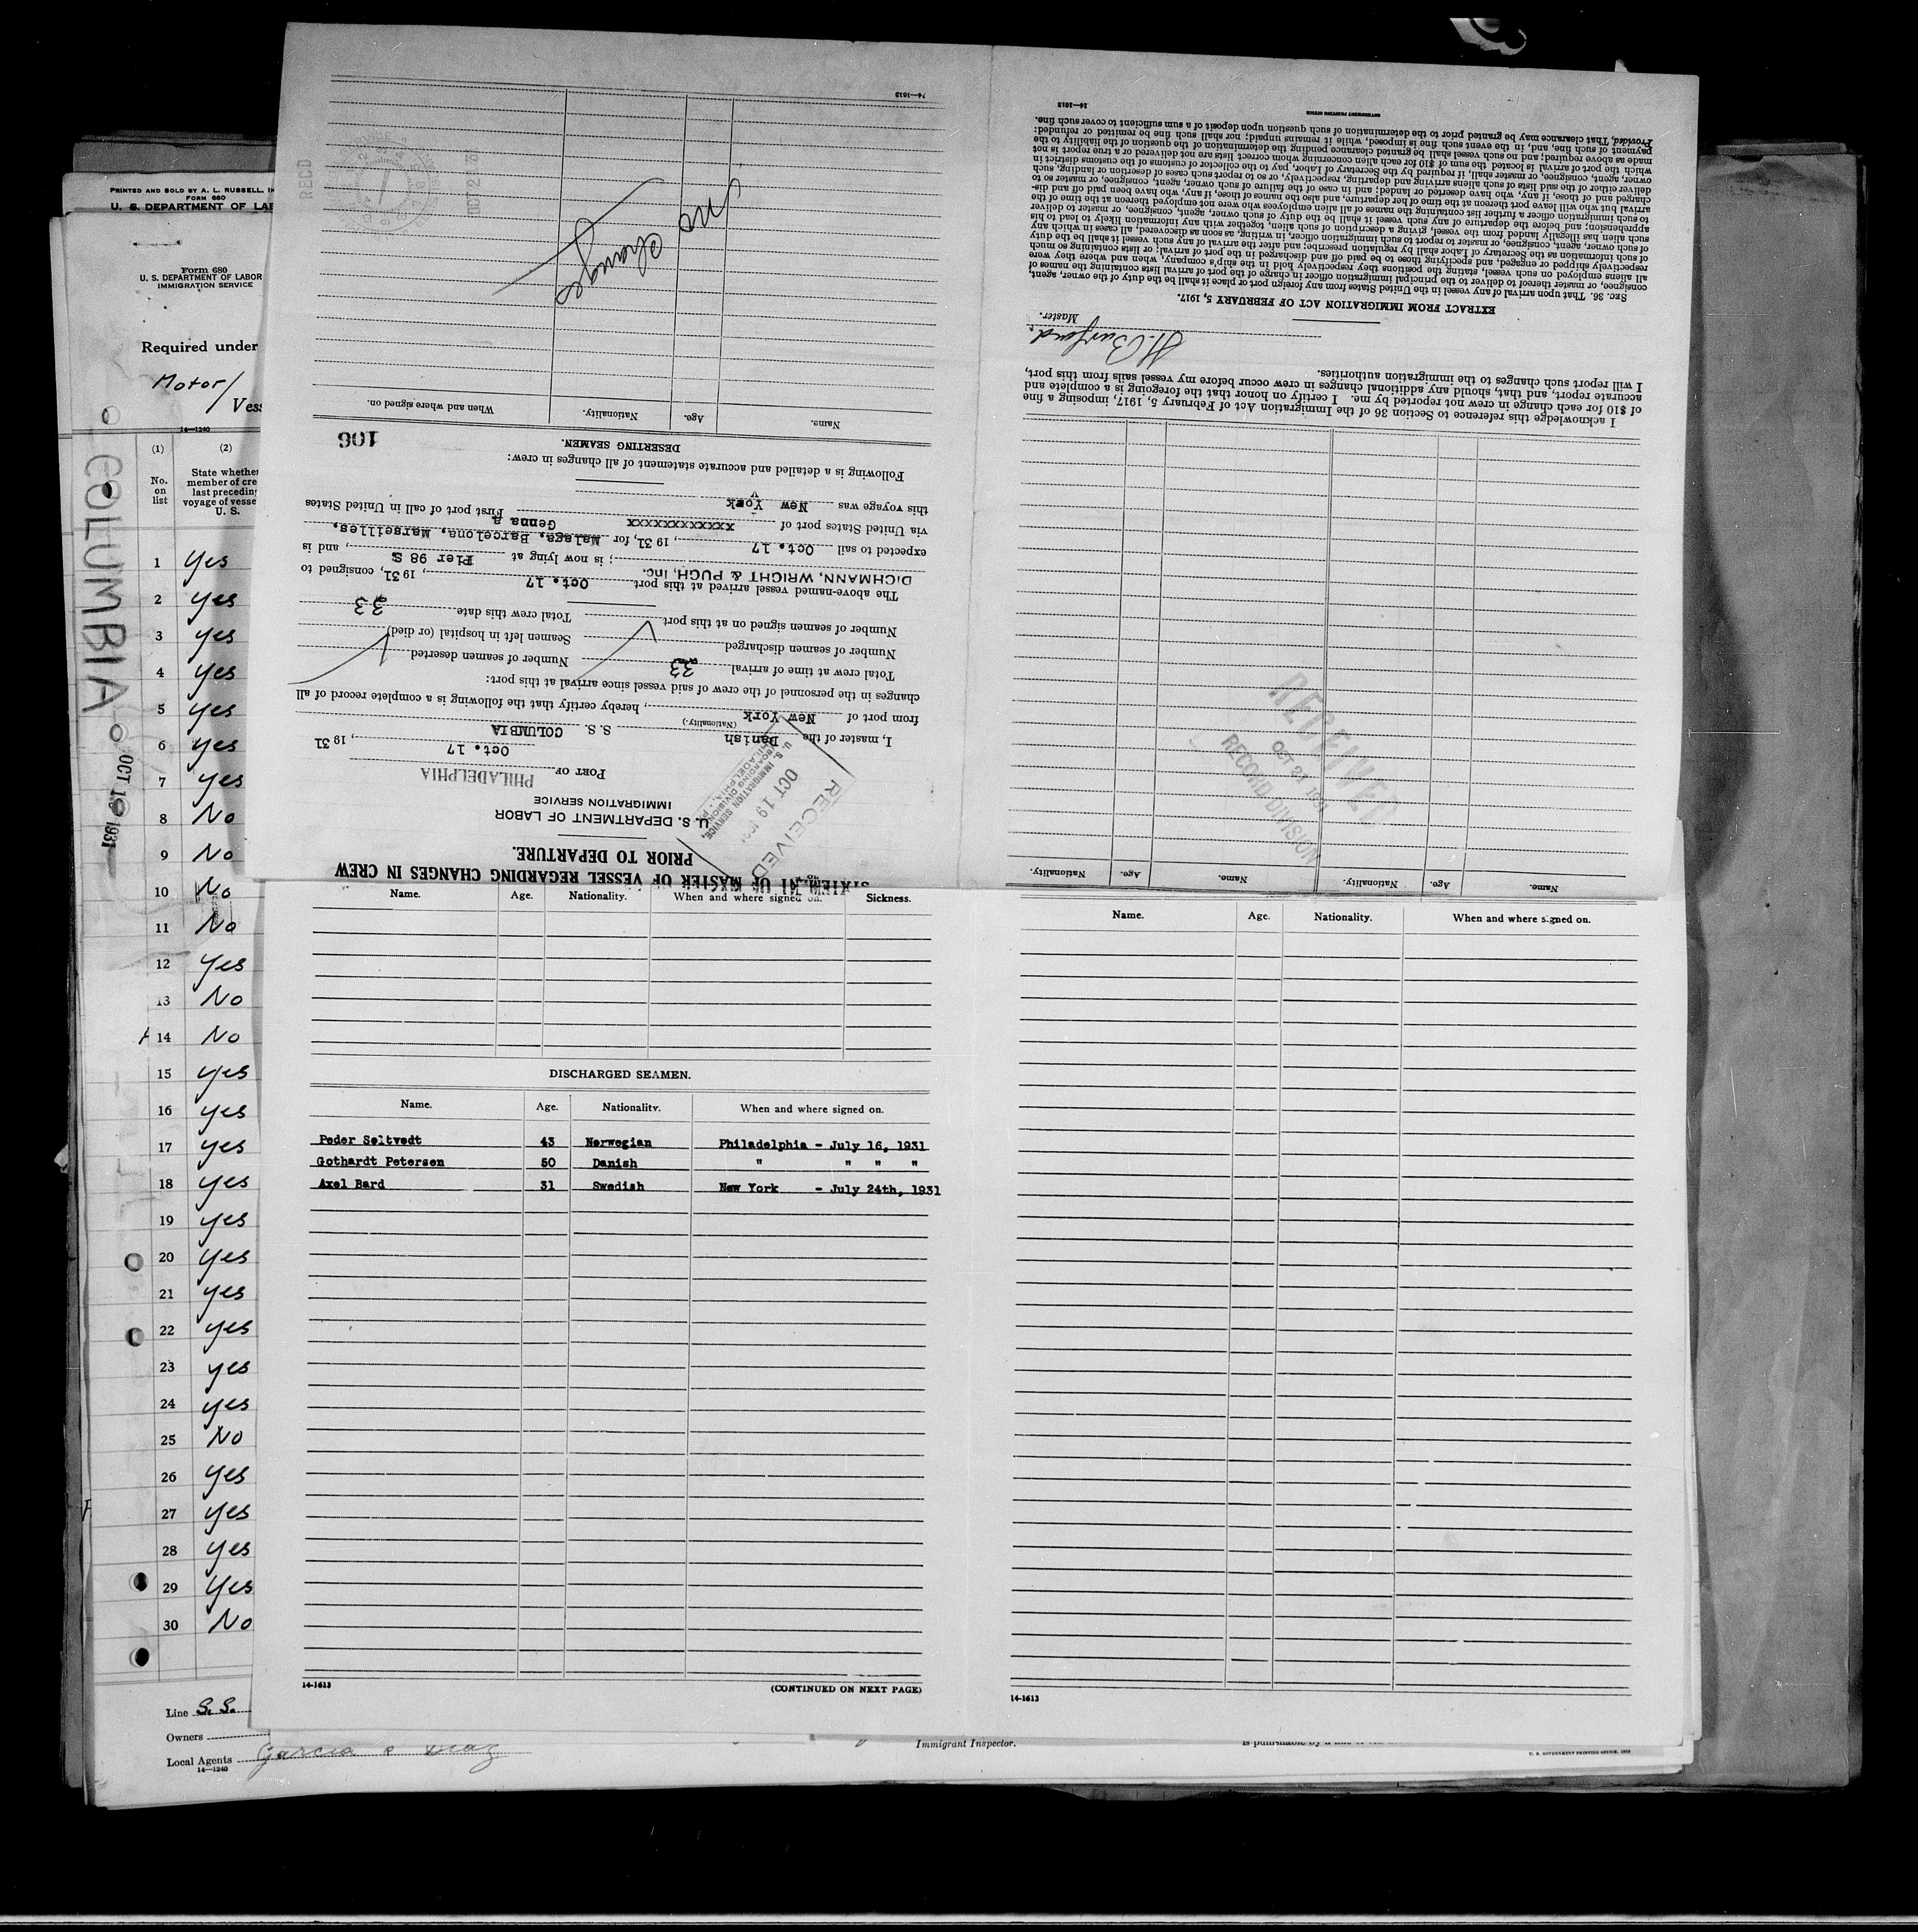 PRINTED AND SOLD BY A. L. RUSSELL,
FORM 680
U. S. DEPARTMENT OF
Form 680
U. S. DEPARTMENT OF LABOR
IMMIGRATION SERVICE
Required under
Motor/
14—1240
(1) (2)
No. on list
State whether
member of
last preceding
voyage of
U. S.
COLUMBIA
OCT 1 1931
1 Yes
2 Yes
3 Yes
4 Yes
5 Yes
6 Yes
7 Yes
8 No
9 No
10 No
11 No
12 Yes
13 No
14 No
15 Yes
16 Yes
17 Yes
18 Yes
19 Yes
20 Yes
21 Yes
22 Yes
23 Yes
24 Yes
25 No
26 Yes
27 Yes
28 Yes
29 Yes
30 No
Line S.S.
Owners
Local Agents Garcia & Diaz
14—1240
STATEMENT OF MASTER OF VESSEL REGARDING CHANGES IN CREW
PRIOR TO DEPARTURE.
U. S. DEPARTMENT OF LABOR
IMMIGRATION SERVICE
RECEIVED
OCT 19
U. S. IMMIGRATION SERVICE,
BOARDING DIVISION,
PORT OF PHILADELPHIA
Oct. 17, 1931
I, master of the Danish S. S. COLUMBIA
(Nationality.)
from port of New York, hereby certify that the following is a complete record of all
changes in the personnel of the crew of said vessel since arrival at this port:
Total crew at time of arrival 33 Number of seamen deserted
Number of seamen discharged Seamen left in hospital (or died)
Number of seamen signed on at this port Total crew this date 33
The above-named vessel arrived at this port Oct. 17, 1931, consigned to
DICHMANN, WRIGHT & PUGH, Inc.; is now lying at Pier 98 S, and is
expected to sail Oct. 17, 1931, for Malaga, Barcelona, Marseilles,
via United States port of xxxxxxxxxxxxx Genna First port of call in United States
this voyage was New York
Following is a detailed and accurate statement of all changes in crew:
106
DESERTING SEAMEN.
Name. Age. Nationality. When and where signed on.
no change
RECD
OCT 21
14—1613
Name. Age. Nationality. Name. Age. Nationality.
RECEIVED
OCT 21 1931
RECORD DIVISION
I acknowledge this reference to Section 36 of the Immigration Act of February 5, 1917, imposing a fine
of $10 for each change in crew not reported by me. I certify on honor that the foregoing is a complete and
accurate report, and that, should any additional changes in crew occur before my vessel sails from this port,
I will report such changes to the immigration authorities.
Master.
EXTRACT FROM IMMIGRATION ACT OF FEBRUARY 5, 1917.
SEC. 36. That upon arrival of any vessel in the United States from any foreign port or place it shall be the duty of the owner, agent,
consignee, or master thereof to deliver to the principal immigration officer in charge of the port of arrival lists containing the names of
all aliens employed on such vessel, stating the positions they respectively hold in the ship's company, when and where they were
respectively shipped or engaged, and specifying those to be paid off and discharged in the port of arrival; or lists containing so much
of such information as the Secretary of Labor shall by regulation prescribe; and after the arrival of any such vessel it shall be the duty
of such owner, agent, consignee, or master to report to such immigration officer, in writing, as soon as discovered, all cases in which any
such alien has illegally landed from the vessel, giving a description of such alien, together with any information likely to lead to his
apprehension; and before the departure of any such vessel it shall be the duty of such owner, agent, consignee, or master to deliver
to such immigration officer a further list containing the names of all alien employees who were not employed thereon at the time of the
arrival but who will leave port thereon at the time of her departure, and also the names of those, if any, who have been paid off and dis-
charged and of those, if any, who have deserted or landed; and in case of the failure of such owner, agent, consignee, or master so to
deliver either of the said lists of such aliens arriving and departing, respectively, or so to report such cases of desertion or landing, such
owner, agent, consignee, or master, shall, if required by the Secretary of Labor, pay to the collector of customs of the customs district in
which the port of arrival is located the sum of $10 for each alien concerning whom correct lists are not delivered or a true report is not
made as above required; and no such vessel shall be granted clearance pending the determination of the question of the liability to the
payment of such fine, and, in the event such fine is imposed, while it remains unpaid; nor shall such fine be remitted or refunded:
Provided, That clearance may be granted prior to the determination of such question upon deposit of a sum sufficient to cover such fine.
GOVERNMENT PRINTING OFFICE
14—1613
Name. Age. Nationality. When and where signed on. Sickness.
DISCHARGED SEAMEN.
Name. Age. Nationality. When and where signed on.
Peder Seltvedt 43 Norwegian Philadelphia - July 16, 1931
Gothardt Petersen 50 Danish " " " "
Axel Bard 31 Swedish New York - July 24th, 1931
14-1613 (CONTINUED ON NEXT PAGE)
Name. Age. Nationality. When and where signed on.
14-1613
Immigrant Inspector.
U. S. GOVERNMENT PRINTING OFFICE